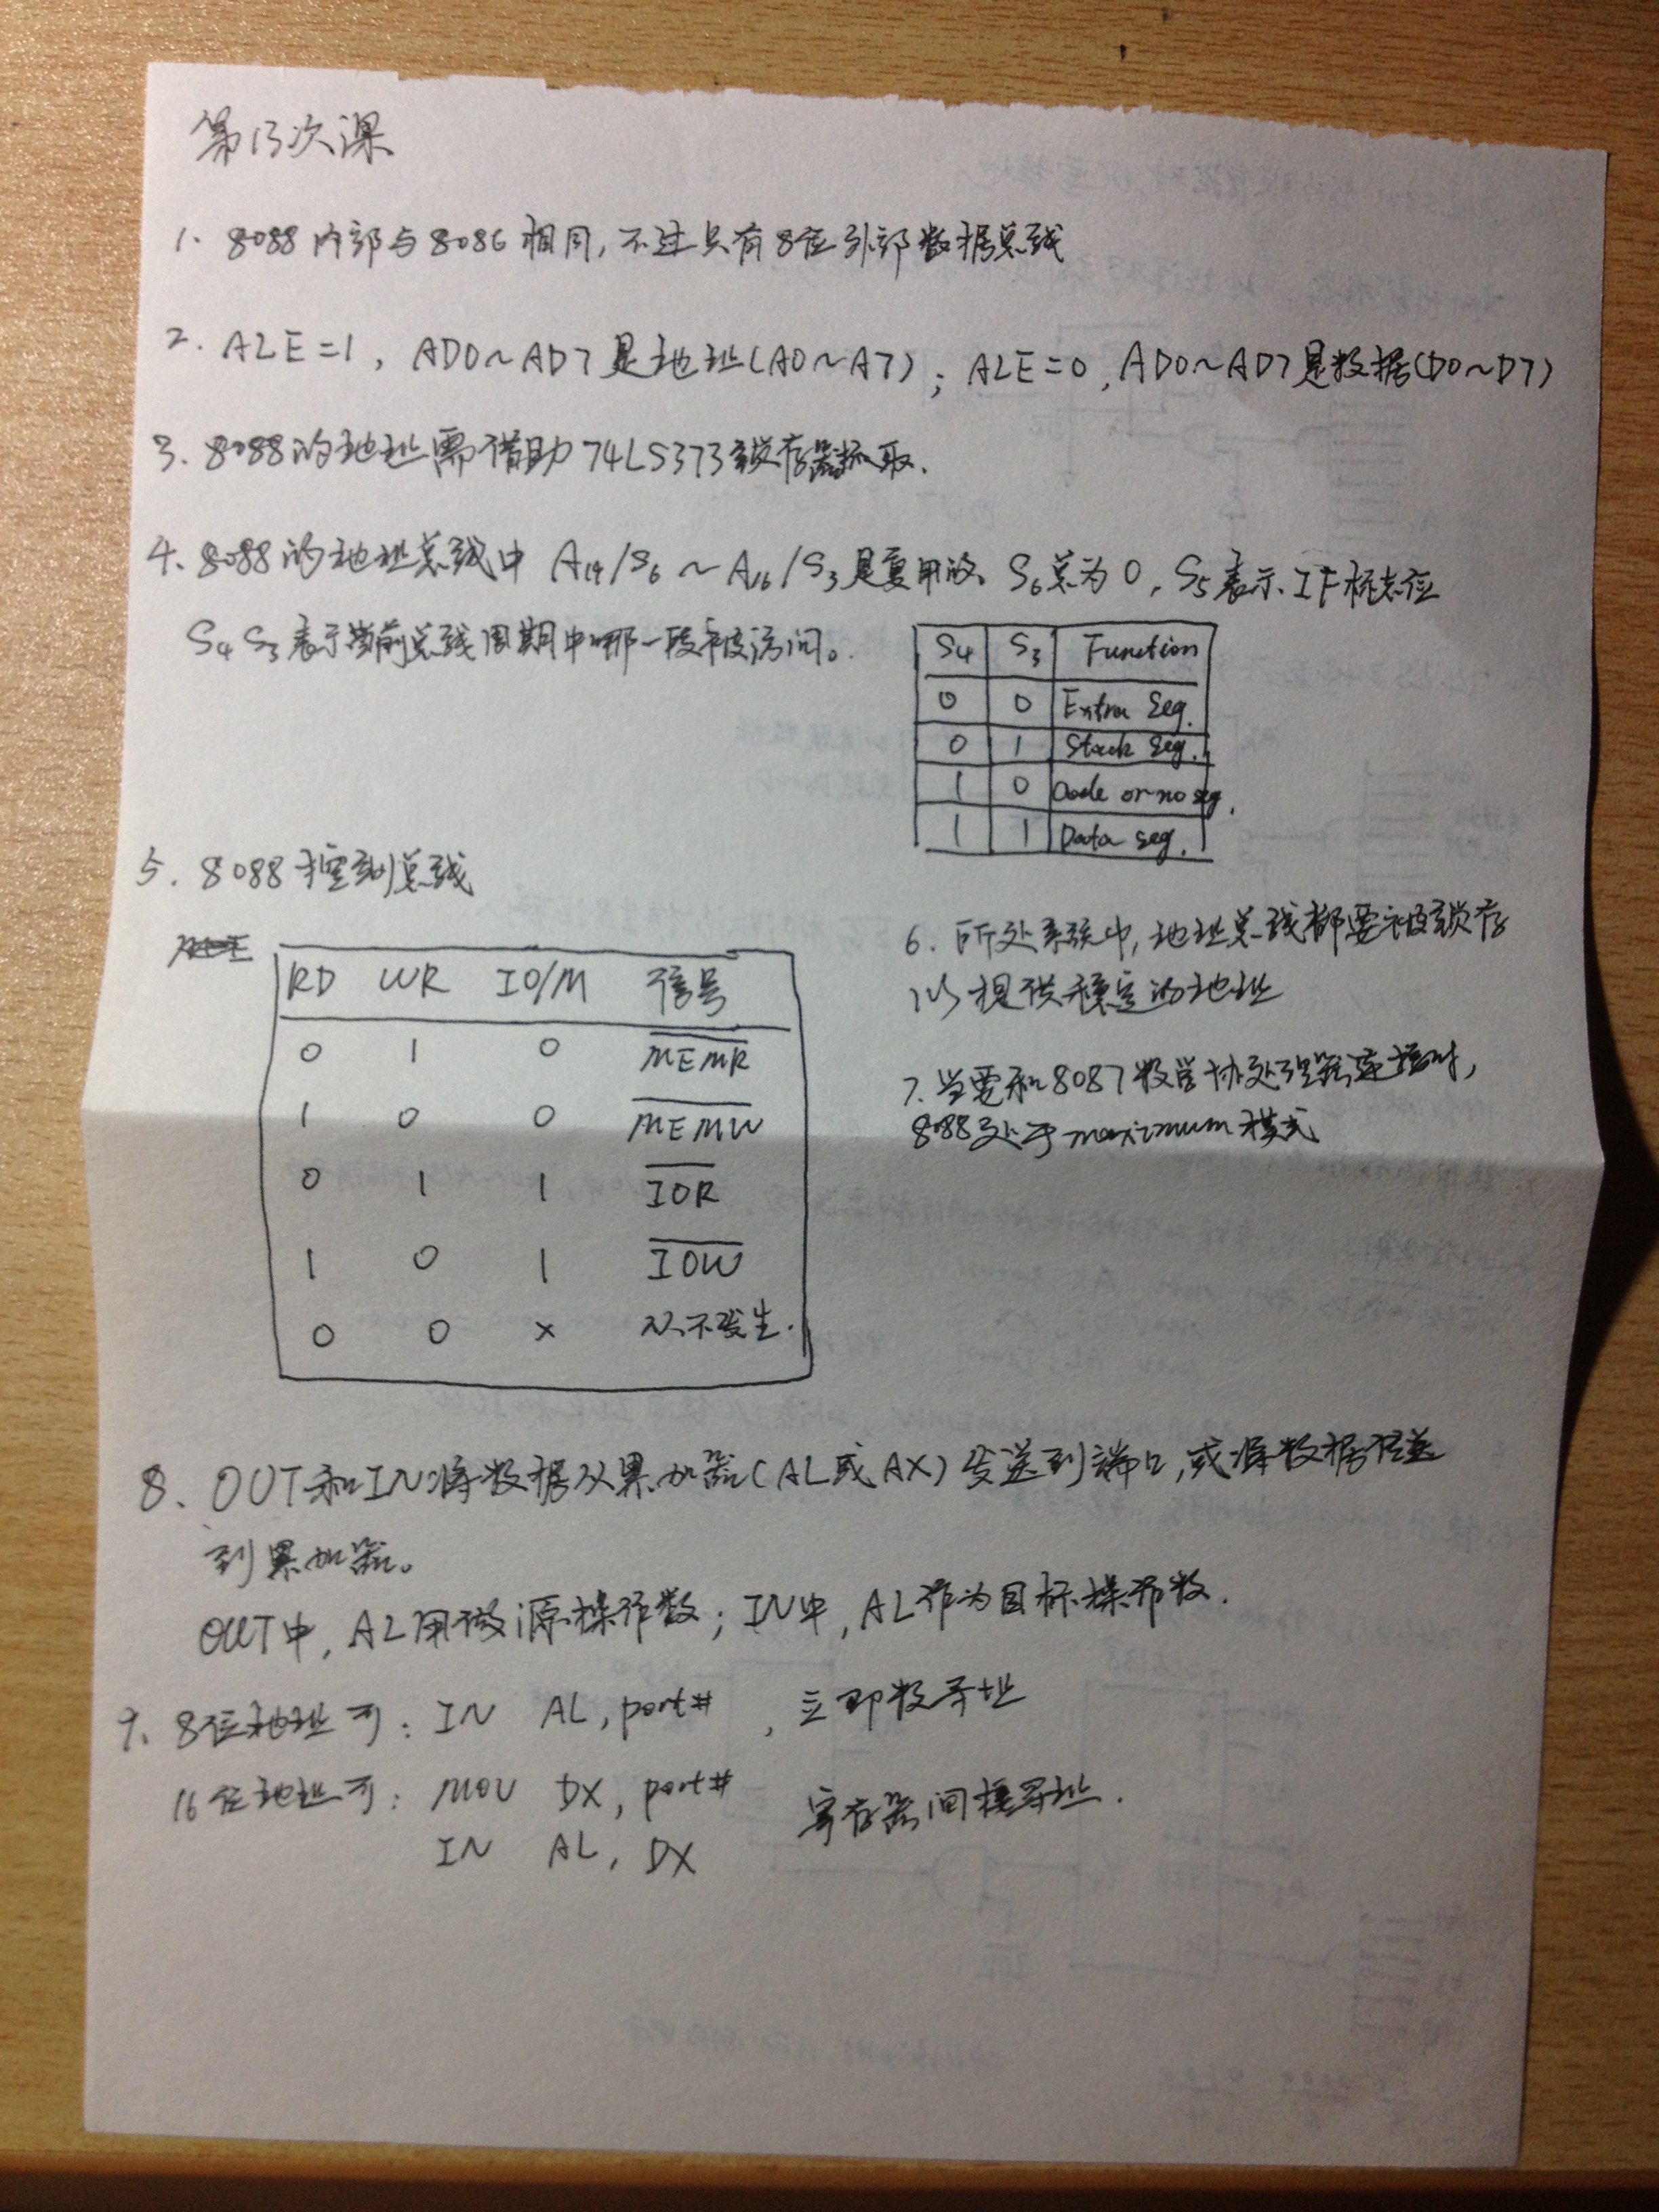 第13次课
1. 8088内部与8086相同,不过只有8位外部数据总线
2. ALE=1, AD0~AD7是地址(A0~A7); ALE=0, AD0~AD7是数据(D0~D7)
3. 8088的地址需借助74LS373锁存器抓取.
4. 8088的地址总线中 A19/S6 ~ A16/S3是复用的、S6总为0, S5表示IF标志位
S4 S3表示当前总线周期中哪一段被访问。
S4 S3 Function
0 0 Extra Seg.
0 1 Stack Seg.
1 0 Code or no seg.
1 1 Data seg.
5. 8088控制总线
RD WR IO/M 信号
0 1 0 MEMR
1 0 0 MEMW
0 1 1 IOR
1 0 1 IOW
0 0 × 从不发生.
6. 所处系统中,地址总线都要被锁存
以提供稳定的地址
7. 当要和8087数学协处理器连接时,
8088处于maximum模式
8、OUT和IN将数据从累加器(AL或AX)发送到端口,或将数据
到累加器。
OUT中, AL用做源操作数; IN中, AL作为目标操作数.
9、8位地址时: IN AL, port# , 立即数寻址
16位地址时: MOV DX, port#
IN AL, DX
寄存器间接寻址.